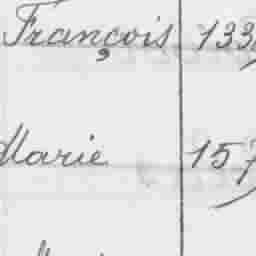 François 133
Marie 157